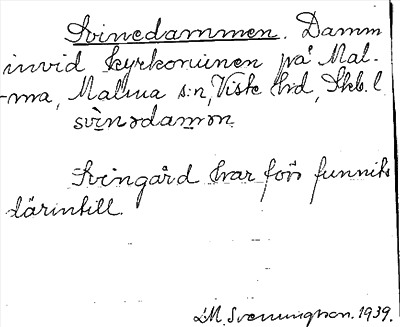 Svinedammen. Damm
invid kyrkoruinen på Mal-
ma, Malma s:n, Viste hrd, Skb. l.
svìnədamən.
Svingård har förr funnits
därintill.
L M. Svenungsson. 1939.